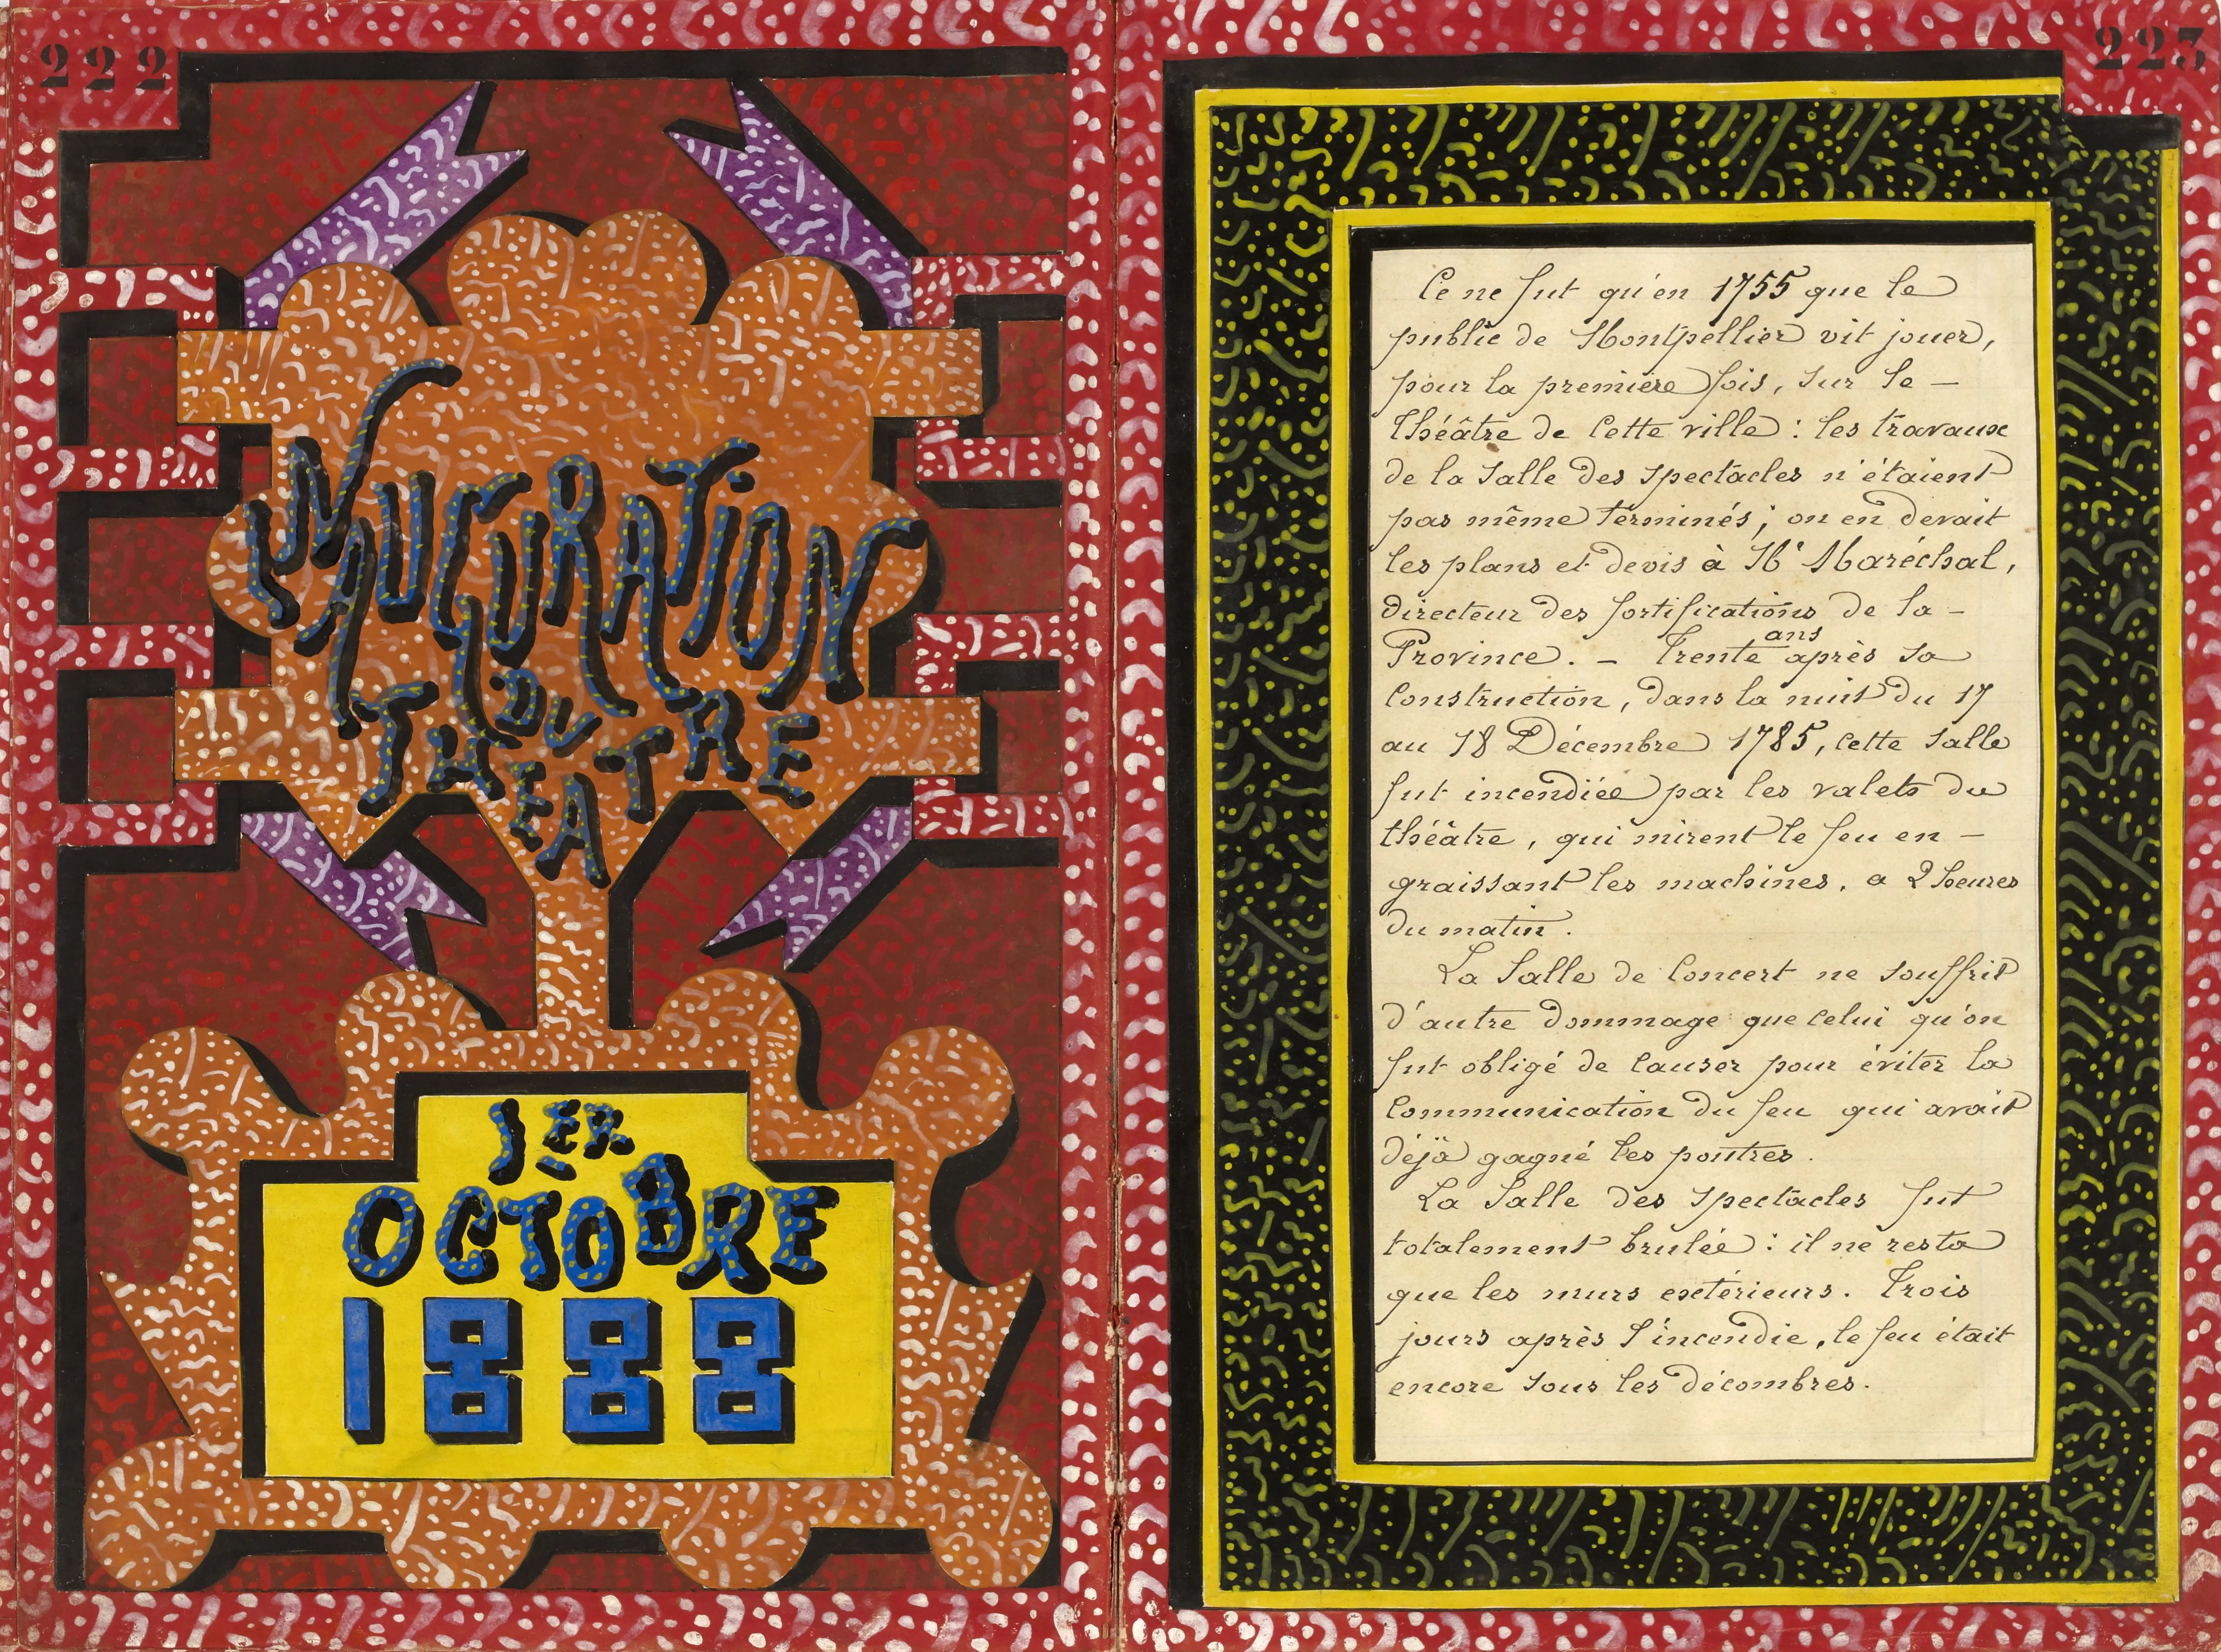 222
INAUGURATION
DU
THEATRE
1ER
OCTOBRE
1888
223
Ce ne fut qu'en 1755 que le
public de Montpellier vit jouer,
pour la premiere fois, sur le —
théâtre de cette ville : les travaux
de la salle des spectacles n'étaient
pas même terminés ; on en devait
les plans et devis à Mr Maréchal,
directeur des fortifications de la —
Province. — Trente ans après sa
construction, dans la nuit du 17
au 18 Décembre 1785, cette salle
fut incendiée par les valets du
théâtre, qui mirent le feu en —
graissant les machines, a 2 heures
du matin.
La Salle de Concert ne souffrit
d'autre dommage que celui qu'on
fut obligé de causer pour éviter la
communication du feu qui avait
déjà gagné les poutres.
La Salle des spectacles fut
totalement brulée : il ne resta
que les murs extérieurs. Trois
jours après l'incendie, le feu était
encore sous les décombres.